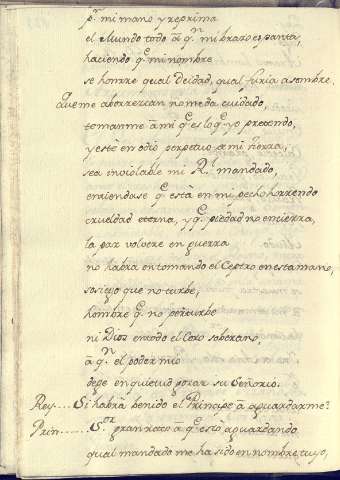 pr. mi mano y reprima
el Mundo todo â qn. mi brazo espanta,
haciendo qe. mi nombre
se honrre qual Deidad, qual furia asombre,
Que me aborrezcan no me da cuidado,
temanme â mi qe. es lo qe. yo pretendo,
y esté en odio perpetuo de mi
sea inviolable mi Rl. mandado,
entiendase qe. está en mi pecho horrendo
crueldad eterna, y qe. piedad no encierra,
la paz volvere en guerra
no habrá en tomando el Ceptro en esta mano,
sosiego que no turbe,
hombre qe. no perturbe
ni Dios en todo el Coro soberano,
â qn. el poder mio
dege en quietud gozar su Señorio.
Rey.... Si habrá benido el Principe â aguardarme?
Prin..... Sor. gran rato â qe. estoy aguardando
qual mandado me ha sido en nombre tuyo,